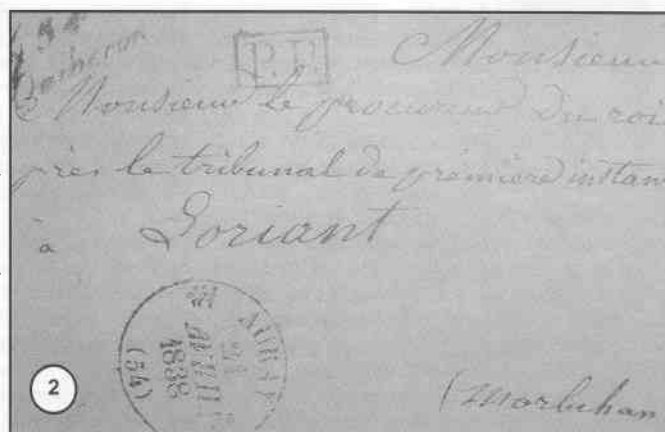 54
P.P.
Monsieur
Monsieur le procureur du roi
près le tribunal de première instan
à Loriant
AURAY
24
AVRIL
1838
(54)
(Morbihan
2